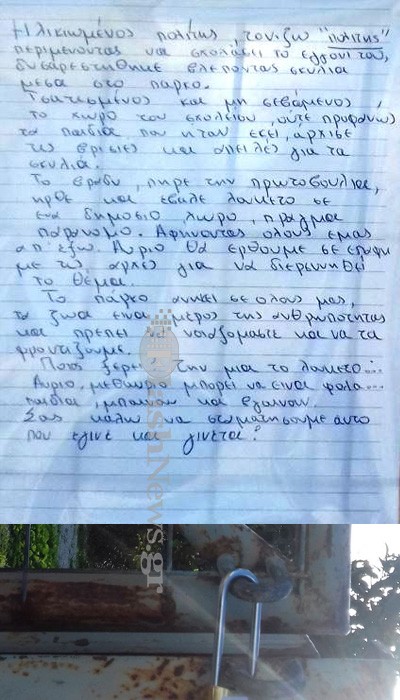 Ηλικιωμένος πολίτης, τονίζω "πολίτης"
περιμενοντας να σχολάσει το εγγονι του,
δυσαρεστήθηκε βλεποντας σκυλια
μεσα στο παρκο.
Τσατισμενος και μη σεβάμενος
το χωρο του σχολειου, ουτε προφανώς
τα παιδια που ηταν εκει, αρχισε
τις βρισιές και απειλές για τα
σκυλια.
Το βραδυ, πηρε την πρωτοβουλια,
ηρθε και εβαλε λουκετο σε
ενα δημοσιο χωρο, πραγμα
παρανομο. Αφηνοντας ολους εμας
απ'εξω. Αυριο θα ερθουμε σε επαφη
με τις αρχές για να διερευνηθεί
το θέμα.
Το πάρκο ανηκει σε ολους μας,
τα ζωα ειναι μερος της ανθρωπότητας
και πρεπει να νοιαζομαστε και να τα
φροντιζουμε.
Ποιος ξερει, την μια το λουκετο...
Αυριο, μεθαυριο μπορει να ειναι φολα...
παιδια μπαινουν και βγαινουν.
Σας καλω να σταματησουμε αυτο
που εγινε και γινεται!
FlashNews.gr